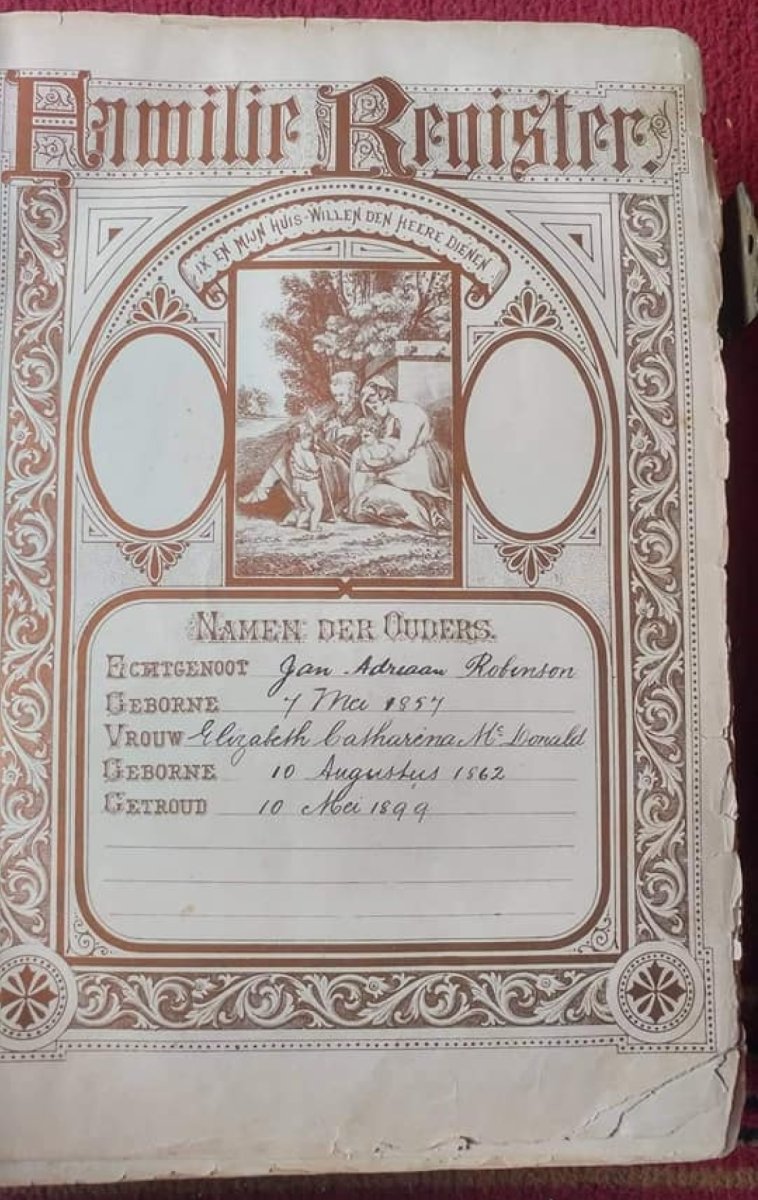 Familie Register.
IK EN MIJN HUIS WILLEN DEN HEERE DIENEN
NAMEN DER OUDERS.
ECHTGENOOT Jan Adriaan Robinson
GEBORNE 7 Mei 1857
VROUW Elizabeth Catharina Mc Donald
GEBORNE 10 Augustus 1862
GETROUD 10 Mei 1899